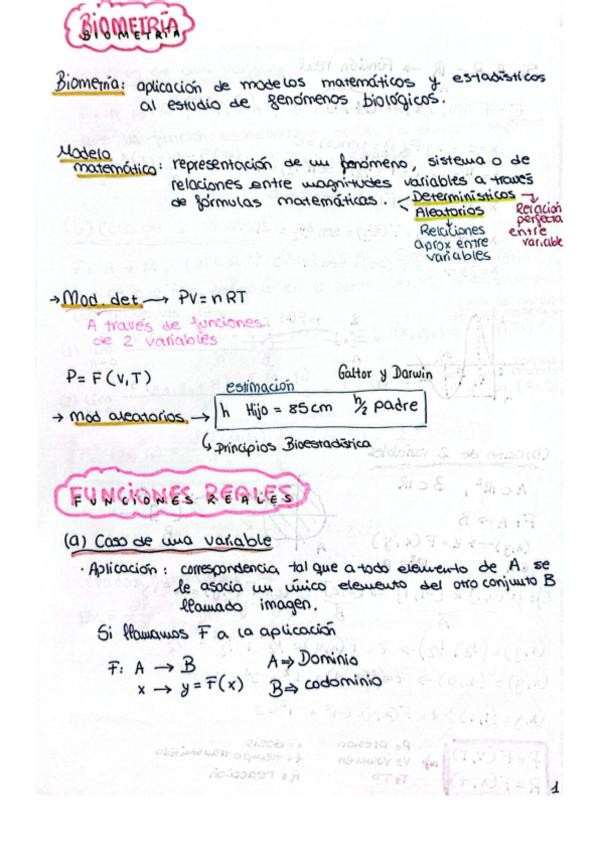 BIOMETRÍA
Biometría: aplicación de modelos matemáticos y estadísticos
al estudio de fenómenos biológicos.
Modelo
matemático: representación de un fenómeno, sistema o de
relaciones entre magnitudes variables a través
de fórmulas matemáticas. Determinísticos → Relación perfecta entre variable
Aleatorios
↓
Relaciones
aprox entre
variables
→ Mod. det → PV = nRT
A través de funciones
de 2 variables
P = F(V,T)
estimación Galtor y Darwin
→ Mod aleatorios → h Hijo = 85cm h/2 padre
↳ Principios Bioestadística
FUNCIONES REALES
(a) Caso de una variable
· Aplicación: correspondencia, tal que a todo elemento de A, se
le asocia un único elemento del otro conjunto B
llamado imagen.
Si llamamos F a la aplicación
F: A → B A ⇒ Dominio
x → y = F(x) B ⇒ codominio
1